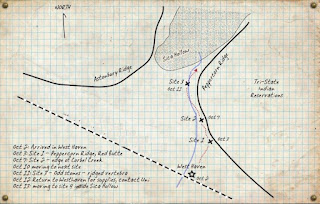 NORTH
Sica Hollow
Astenburg Ridge
Peppercorn Ridge
Site 3
Oct 11
Tri-State
Indian
Reservations
Site 2
Oct 9
Site 1
Oct 3
West Haven
Oct 2
Oct 2: Arrived in West Haven
Oct 3: Site 1 - Peppercorn Ridge, Red Butte
Oct 9: Site 2 - edge of Corbel Creek
Oct 10 moving to next site
Oct 11: Site 3 - Odd stones - ridged vertebra
Oct 12: Return to Westhaven for supplies, contact Uni
Oct 13: moving to site 4 inside Sica Hollow